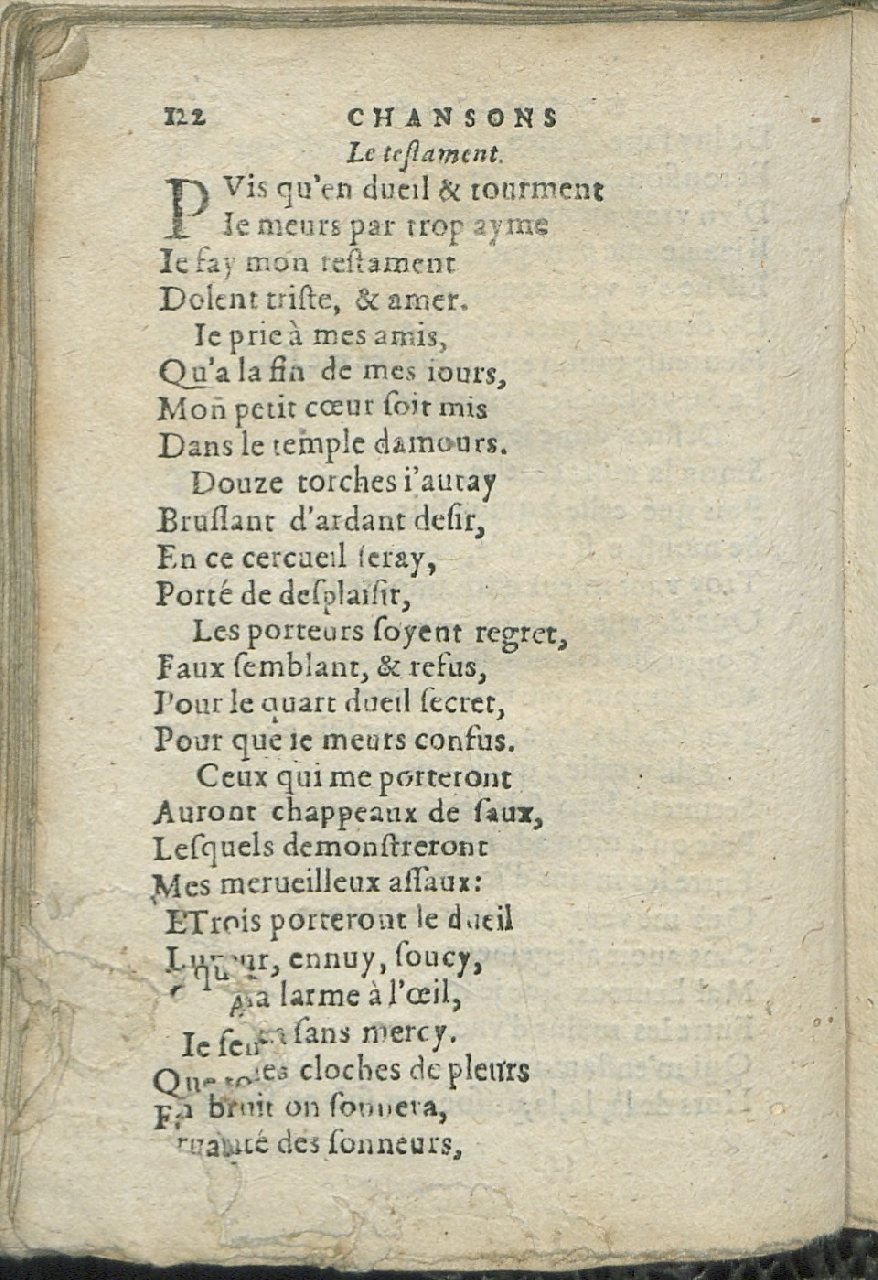 122 CHANSONS
Le teſtament.
PVis qu'en dueil & tourment
Ie meurs par trop ayme
Ie fay mon teſtament
Dolent triſte, & amer.
Ie prie à mes amis,
Qu'a la fin de mes iours,
Mon petit cœur ſoit mis
Dans le temple damours.
Douze torches i'auray
Bruſlant d'ardant deſir,
En ce cercueil ſeray,
Porté de deſplaiſir,
Les porteurs ſoyent regret,
Faux ſemblant, & refus,
Pour le quart dueil ſecret,
Pour que ie meurs confus.
Ceux qui me porteront
Auront chappeaux de ſaux,
Leſquels demonſtreront
Mes merueilleux aſſaux:
ETrois porteront le dueil
ennuy, ſoucy,
larme à l'œil,
Ie ſans mercy.
cloches de pleurs
bruit on ſonnera,
des ſonneurs,